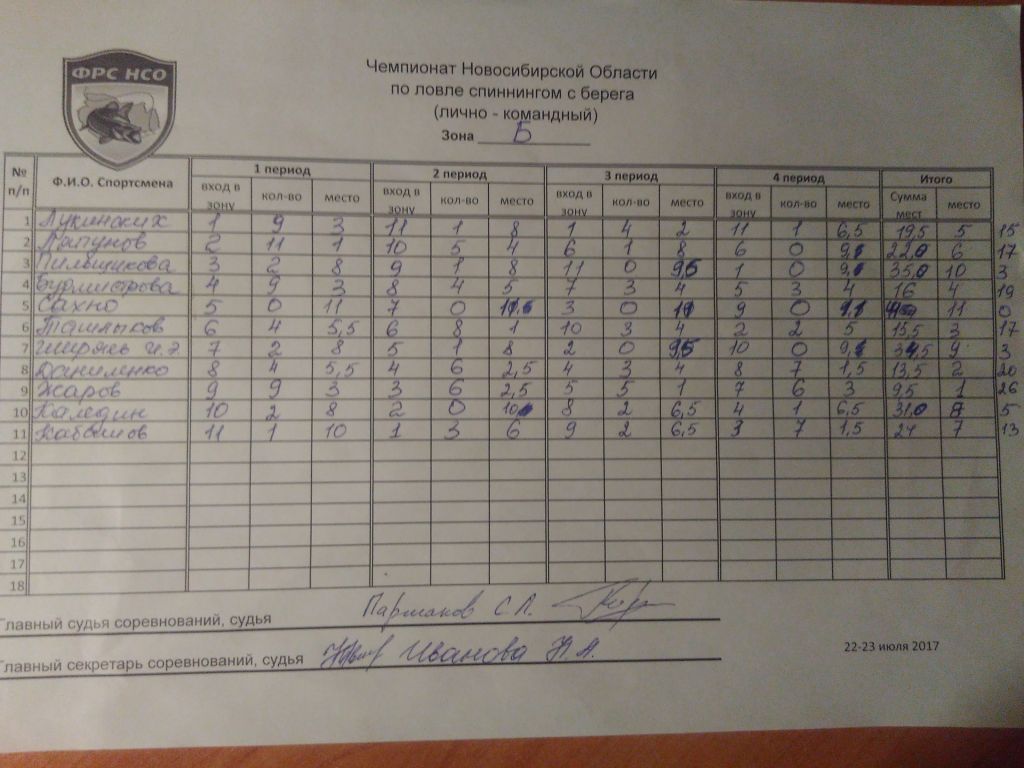 ФРС НСО
Чемпионат Новосибирской Области
по ловле спиннингом с берега
(лично - командный)
Зона Б
№ п/п Ф.И.О. Спортсмена 1 период 2 период 3 период 4 период Итого
вход в зону кол-во место вход в зону кол-во место вход в зону кол-во место вход в зону кол-во место Сумма мест место
1 Лукинских 1 9 3 11 1 8 1 4 2 11 1 6,5 19,5 5 15
2 Лапунов 2 11 1 10 5 4 6 1 8 6 0 22,0 6 17
3 Пильщикова 3 2 8 9 1 8 11 0 9,5 1 0 35,0 10 3
4 Бурмистрова 4 9 3 8 4 5 7 3 4 5 3 4 16 4 19
5 Сахно 5 0 11 7 0 3 0 9 0 11 0
6 Ташлыков 6 4 5,5 6 8 1 10 3 4 2 2 5 15,5 3 17
7 7 2 8 5 1 8 2 0 9,5 10 0 9 3
8 Даниленко 8 4 5,5 4 6 2,5 4 3 4 8 7 1,5 13,5 2 20
9 Жаров 9 9 3 3 6 2,5 5 5 1 7 6 3 9,5 1 26
10 Каледин 10 2 8 2 0 10 8 2 6,5 4 1 6,5 31,0 8 5
11 11 1 10 1 3 6 9 2 6,5 3 7 1,5 24 7 13
12
13
14
15
16
17
18
Главный судья соревнований, судья С.П.
Главный секретарь соревнований, судья Иванова Н.А.
22-23 июля 2017